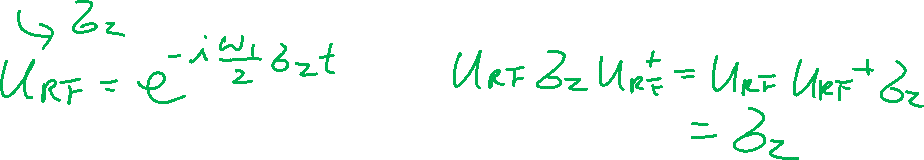 ↳ σz
U_RF = e^{-i ω₁/2 σz t}
U_RF σz U_RF^† = U_RF U_RF^† σz
= σz